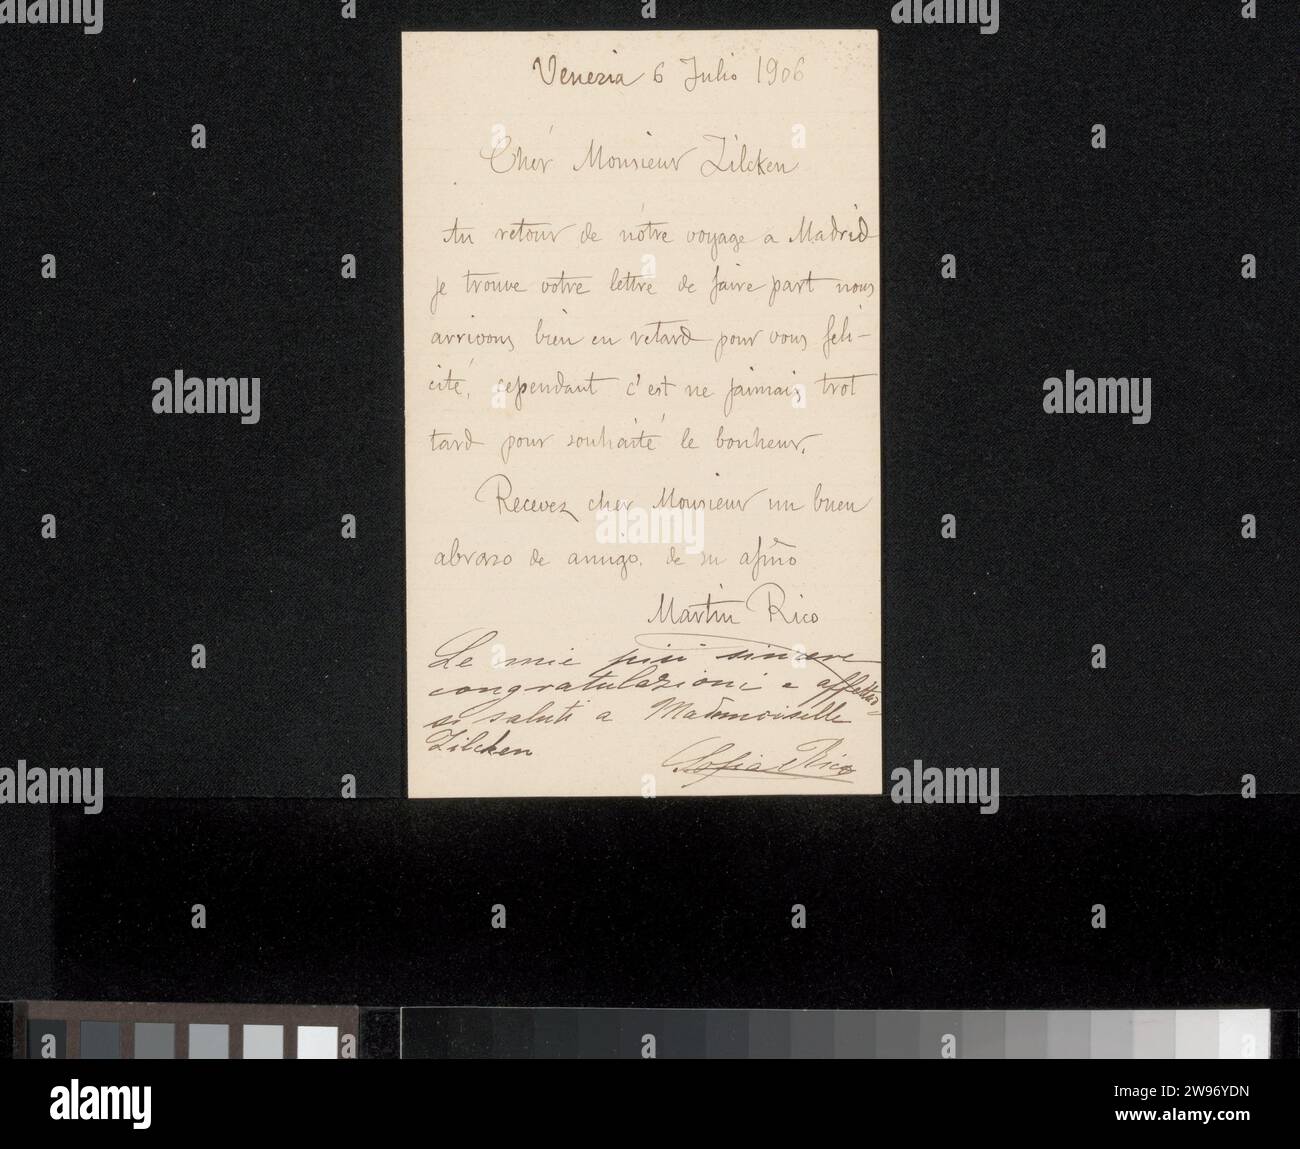 Venezia 6 Julio 1906
Chér Monsieur Zilcken
Au retour de nótre voyage a Madrid
je trouve votre lettre de faire part nous
arrivons bien en retard pour vous féli-
cité, cependant c'est ne jaimais trot
tard pour souhaité le bonheur.
Recevez cher Monsieur un buen
abrazo de amigo. de su afmo
Martin Rico
Le mie più sincere
congratulazioni e affettuo=
si saluti a Mademoiselle
Zilcken
Sofia Rico
alamy
a
alamy
Image ID: 2W96YDN
www.alamy.com